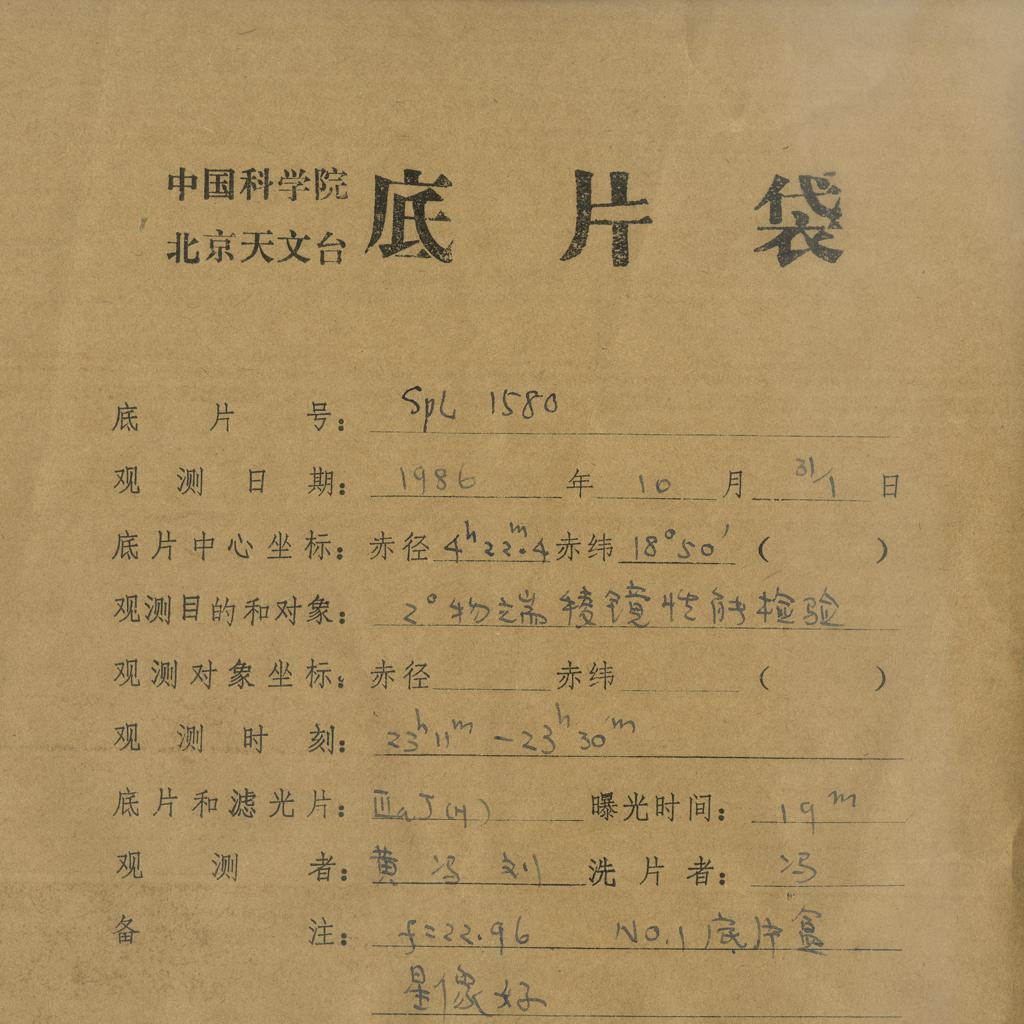 中国科学院
北京天文台
底片袋
底片号: SpL 1580
观测日期: 1986年10月31/1日
底片中心坐标: 赤径 4ʰ22ᵐ.4 赤纬 18°50′ ( )
观测目的和对象: 2°物端棱镜性能检验
观测对象坐标: 赤径 赤纬 ( )
观测时刻: 23ʰ11ᵐ—23ʰ30ᵐ
底片和滤光片: ⅢaJ(H) 曝光时间: 19ᵐ
观测者: 黄 冯 刘 洗片者: 冯
备注: f=22.96 NO.1 底片盒
星像好